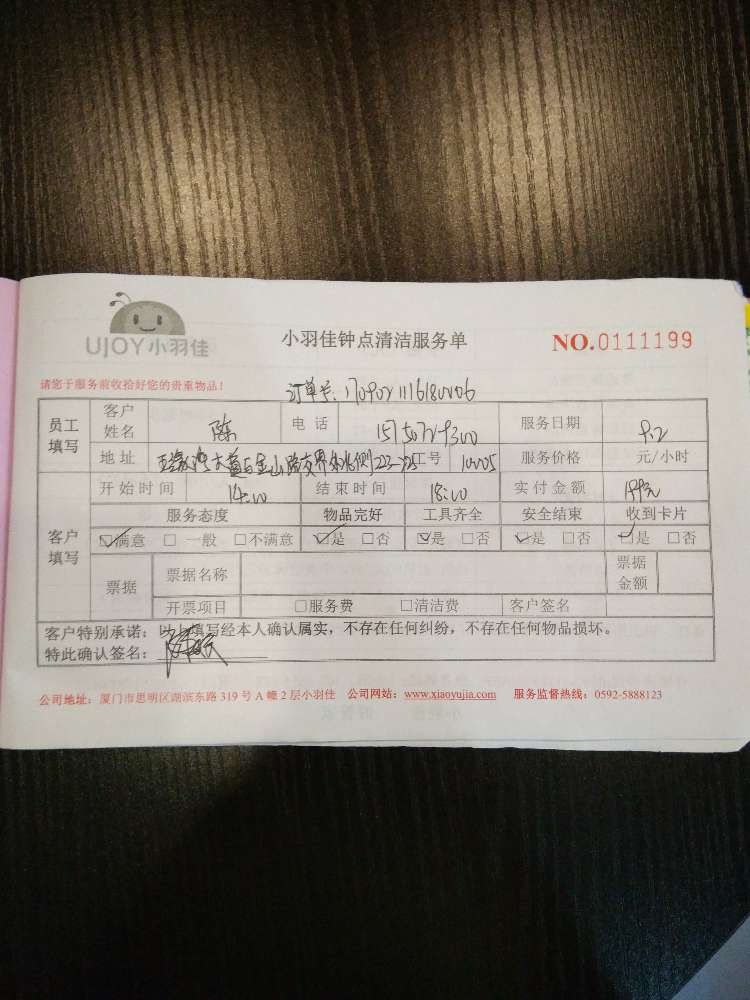 UJOY小羽佳
小羽佳钟点清洁服务单
NO.0111199
请您于服务前收拾好您的贵重物品!
订单号:
员工填写
客户姓名 陈 电话 服务日期 9.2
地址 大道与金山路交界 工号 10005 服务价格 元/小时
客户填写
开始时间 14:00 结束时间 18:00 实付金额 199元
服务态度 物品完好 工具齐全 安全结束 收到卡片
☑满意 □一般 □不满意 ☑是 □否 ☑是 □否 ☑是 □否 ☑是 □否
票据 票据名称 票据金额
开票项目 □服务费 □清洁费 客户签名
客户特别承诺:以上填写经本人确认属实,不存在任何纠纷,不存在任何物品损坏。
特此确认签名:
公司地址:厦门市思明区湖滨东路 319 号 A 幢 2 层小羽佳 公司网站:www.xiaoyujia.com 服务监督热线:0592-5888123